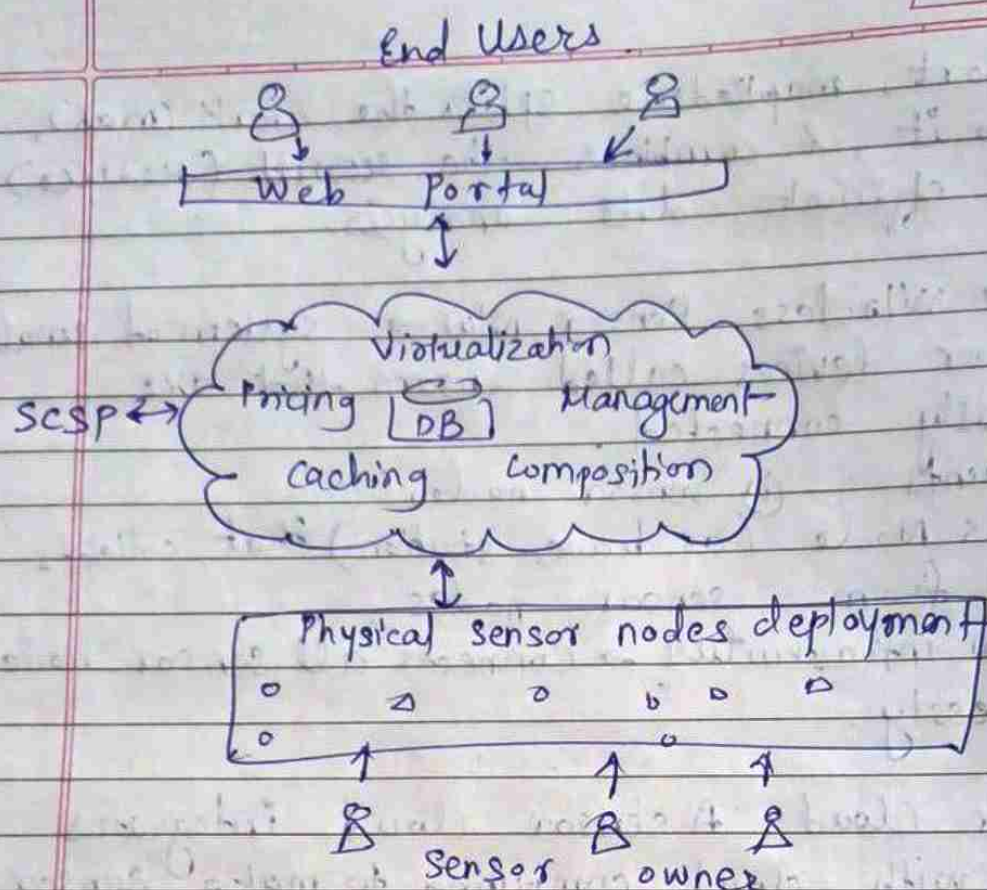 End Users
Web Portal
Virtualization
Pricing DB Management
SCSP
Caching Composition
Physical sensor nodes deployment
Sensor owner